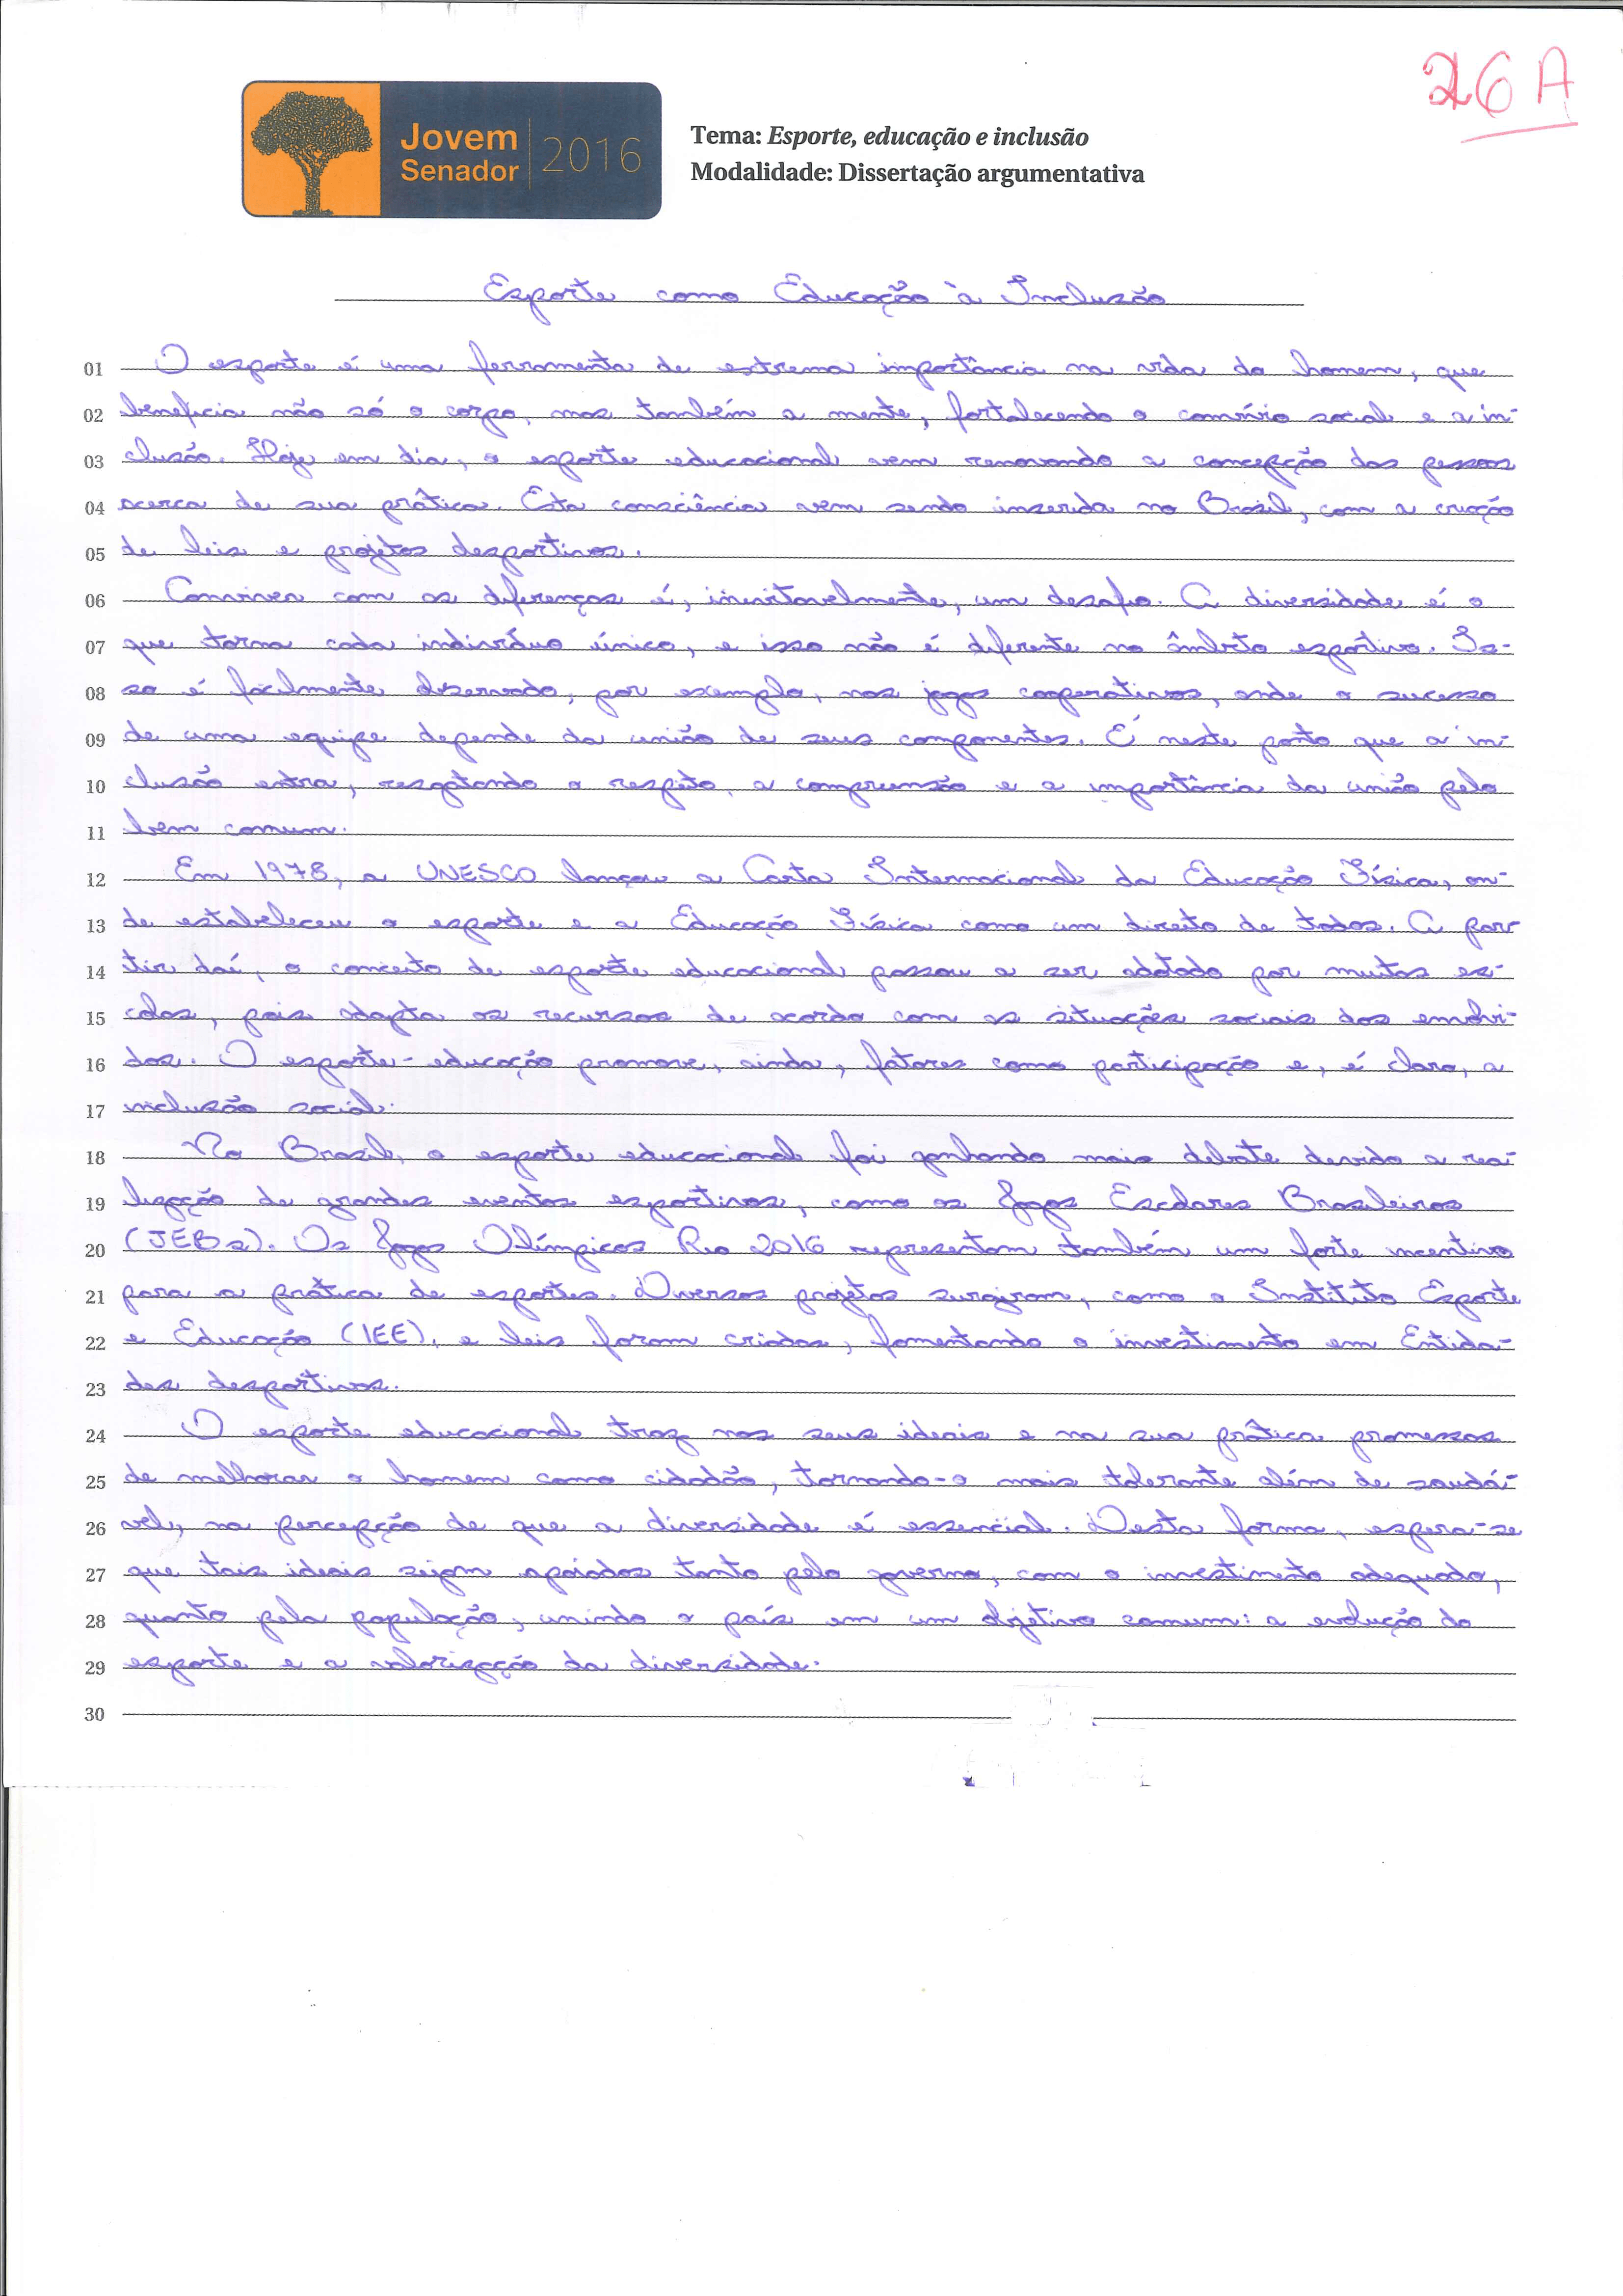 26 A
Jovem
Senador
2016
Tema: Esporte, educação e inclusão
Modalidade: Dissertação argumentativa
Esporte como Educação à Inclusão
01 O esporte é uma ferramenta de extrema importância na vida do homem, que
02 beneficia não só o corpo, mas também a mente, fortalecendo o convívio social e a in-
03 clusão. Hoje em dia, o esporte educacional vem renovando a concepção das pessoas
04 acerca de sua prática. Esta consciência vem sendo inserida no Brasil, com a criação
05 de leis e projetos desportivos.
06 Conviver com as diferenças é, inevitavelmente, um desafio. A diversidade é o
07 que torna cada indivíduo único, e isso não é diferente no âmbito esportivo. Is-
08 so é facilmente observado, por exemplo, nos jogos cooperativos, onde o sucesso
09 de uma equipe depende da união de seus componentes. É neste ponto que a in-
10 clusão entra, resgatando o respeito, a compreensão e a importância da união pelo
11 bem comum.
12 Em 1978, a UNESCO lançou a Carta Internacional da Educação Física, on-
13 de estabeleceu o esporte e a Educação Física como um direito de todos. A par-
14 tir daí, o conceito de esporte educacional passou a ser adotado por muitas es-
15 colas, pois adapta os recursos de acordo com as situações sociais dos envolvi-
16 dos. O esporte-educação promove, ainda, fatores como participação e, é claro, a
17 inclusão social.
18 No Brasil, o esporte educacional foi ganhando mais debate devido a rea-
19 lização de grandes eventos esportivos, como os Jogos Escolares Brasileiros
20 (JEBs). Os Jogos Olímpicos Rio 2016 representam também um forte incentivo
21 para a prática de esportes. Diversos projetos surgiram, como o Instituto Esporte
22 e Educação (IEE), e leis foram criadas, fomentando o investimento em Entida-
23 des desportivas.
24 O esporte educacional traz nos seus ideais e na sua prática promessas
25 de melhorar o homem como cidadão, tornando-o mais tolerante além de saudá-
26 vel, na percepção de que a diversidade é essencial. Desta forma, espera-se
27 que tais ideais sejam apoiados tanto pelo governo, com o investimento adequado,
28 quanto pela população, unindo o país em um objetivo comum: a evolução do
29 esporte e a valorização da diversidade.
30